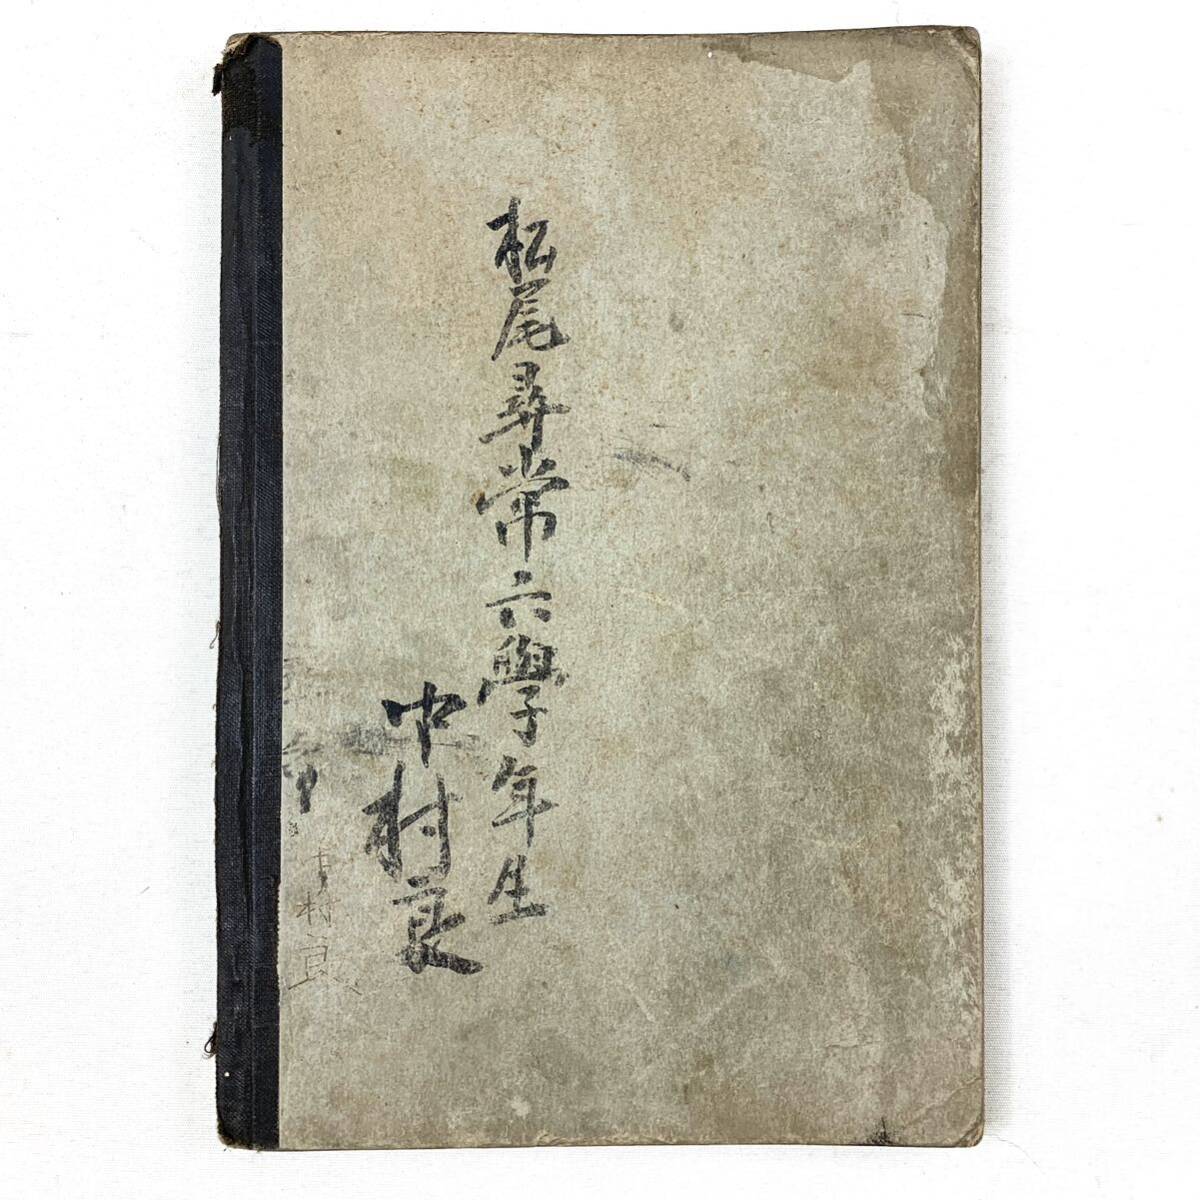 松尾尋常六學年生
中村良
中村良